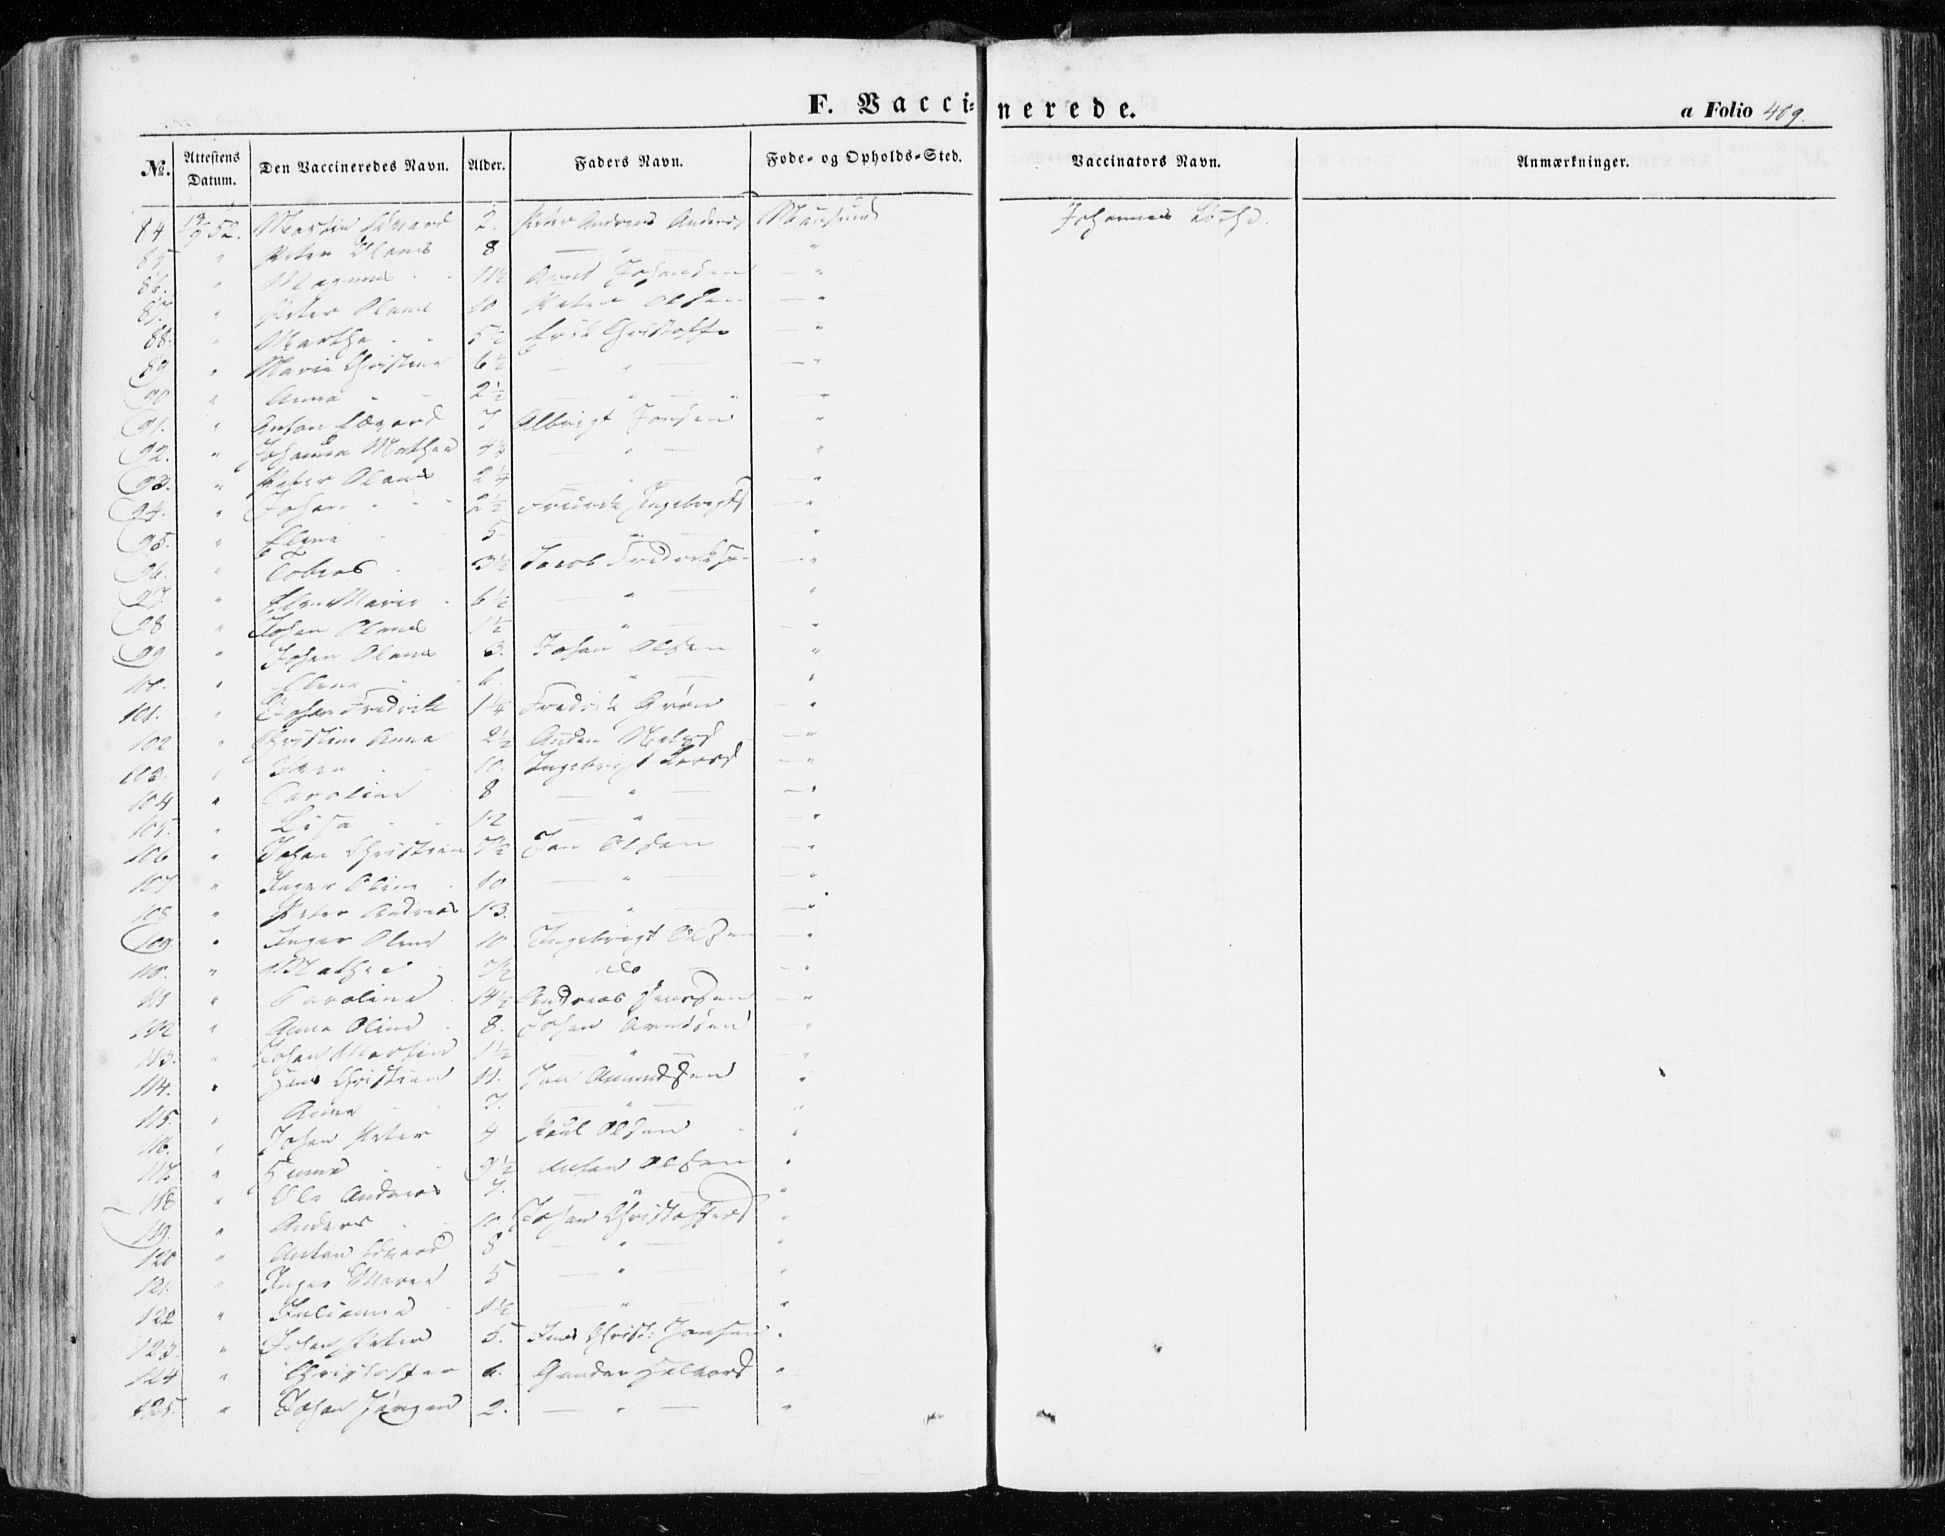 F. Vaccinerede.
a Folio 409.
№. Attestens Datum. Den Vaccineredes Navn. Alder. Faders Navn. Føde- og Opholds-Sted. Vaccinators Navn. Anmærkninger.
84 52. Martin Edvard 2. Peter Andreas Anders Mausund Johannes
85 " Peter Olaus 8 — " — "
86. " Magnus 11½ Arnt Johansen — "
87. " Peter Olaus 10 Peter Olsen — "
88. " Martha 5½ Erik Christoff — "
89 " Marie Christine 6½ — " — — "
90 " Anna 2½ — " — "
91. " Anton Edvard 7 Albrigt Jonsen — "
92. " Johanna Mathea 4¼ — " — "
93. " Peter Olaus 2¼ — " — "
94. " Johan 2½ Fredrik Ingebrigts — "
95. " Elena 5 — " — "
96. " Tobias 3½ Jacob Fredriksen — "
97. " Elen Marie 6½ — " — "
98 " Johan Olaus 1½ — " — "
99 " Johan Olaus 3. Johan Olsen "
100. " Elena 6. " "
101. " Johan Fredrik 1¼ Fredrik Grøn — "
102 " Christine Anna 2½ — "
103. " 10. Ingebrigt — "
104 " Caroline 8 — " — — "
105. " Lisa 12 — " — — "
106 " Johan Christian 7½ Jon Olsen — "
107 " Inger Oline 10 — " — "
108 " Peter Andreas 13. — " — — "
109. " Inger Oline 10 Ingebrigt Olsen — "
110. " Mathea 7½ do — "
111 " Caroline 14½ Andreas Jensen — "
112 " Anna Oline 8. Johan Arntsen "
113. " Johan Martin 1½ — " — "
114. " Hans Christian 11. Jon Amundsen "
115. " Anna 7. — " — "
116. " Johan Peter 4 Paul Olsen "
117. " 9½ Anton Olsen "
118 " Ole Andreas 7. — " — "
119. " Anders 10 Johan Christoffers "
120 " Anton Edvard 8 " — "
121. " Inger Maria 5 — " — "
122 " Julianna 1½ — " — "
123. " Johan Peter 5. Jens Christ: Jonsen "
124 " Christoffer 6. Gunder Halvors "
125. " Johan Jørgen 2. — " — "